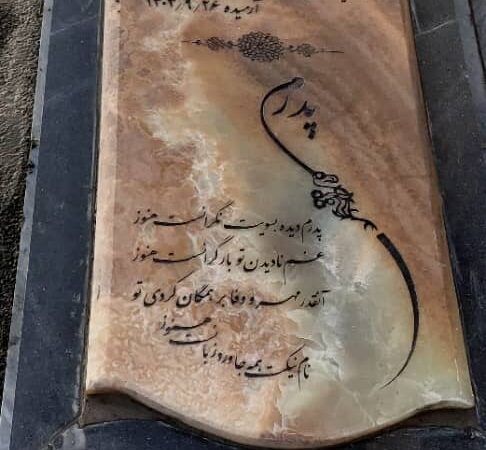 آرمیده ۱۴۰۲/۹/۲۶
پدرم
پدرم دیده بسویت نگرانست هنوز
غم نادیدن تو بار گرانست هنوز
آنقدر مهر و وفا بر همگان کردی تو
نام نیکت همه جا ورد زبانست هنوز